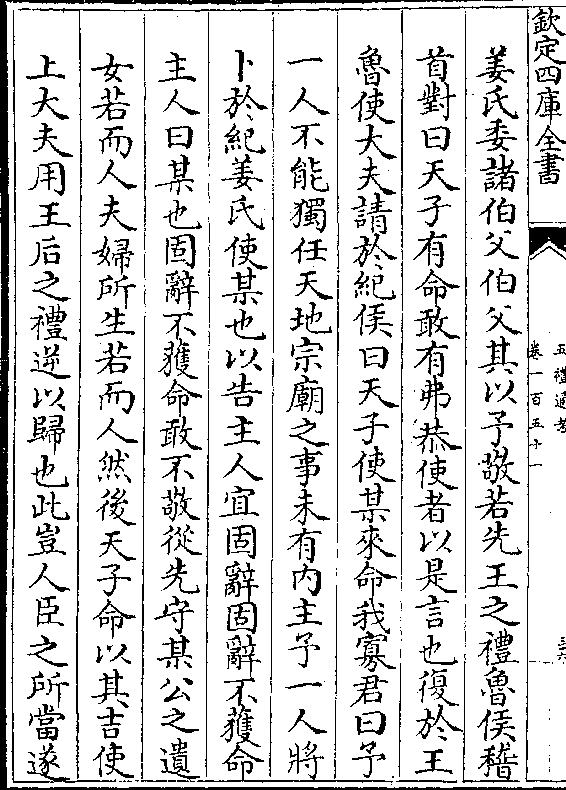 欽定四庫全書
五禮通考
卷一百五十一
三六
姜氏委諸伯父伯父其以予敬若先王之禮魯侯稽
首對曰天子有命敢有弗恭使者以是言也復於王
魯使大夫請於紀侯曰天子使某來命我寡君曰予
一人不能獨任天地宗廟之事未有内主予一人將
卜於紀姜氏使某也以告主人宜固辭固辭不獲命
主人曰某也固辭不獲命敢不敬從先守某公之遺
女若而人夫婦所生若而人然後天子命以其吉使
上大夫用王后之禮逆以歸也此豈人臣之所當遂